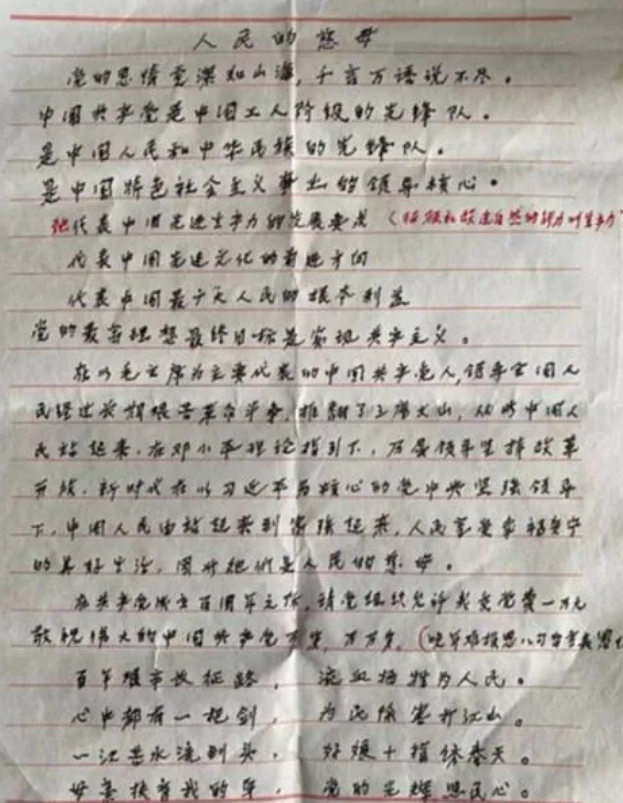 人民的慈母
党的恩情党深如山海,千言万语说不尽。
中国共产党是中国工人阶级的先锋队。
是中国人民和中华民族的先锋队。
是中国特色社会主义事业的领导核心。
代表中国先进生产力的发展要求(
代表中国先进文化的前进方向
代表中国最广大人民的根本利益
党的最高理想最终目标是实现共产主义。
在以毛主席为主要代表的中国共产党人,领导全国人
民经过长期艰苦革命斗争,推翻了三座大山,从此中国人
民站起来,在邓小平理论指引下,开展领导坚持改革
开放,新时代在以习近平为核心的党中央坚强领导
下,中国人民由站起来到富强起来,人民享受幸福安宁
的美好生活,因此她们是人民的慈母。
在共产党成立百周年之际,请党组织允许我交党费一万元
敬祝伟大的中国共产党万岁,万万岁,(
百年 长征路, 流血牺牲为人民。
心中都有一把剑, 为民除害打江山。
一江 水流到头, 好 十指 春天。
母亲 我的 , 党的光辉照民心。